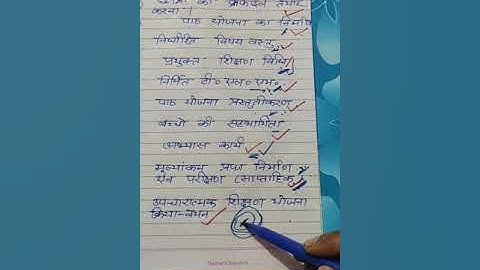 छात्रों का प्रोफाइल तैयार
करना।
पाठ योजना का निर्माण
निर्धारित विषय वस्तु
प्रयुक्त शिक्षण विधि
निर्मित टी० एल० एम०
पाठ योजना प्रस्तुतीकरण
बच्चों की सहभागिता
अभ्यास कार्य
मूल्यांकन प्रपत्र निर्माण
एवं परीक्षण (साप्ताहिक)
उपचारात्मक शिक्षण योजना
क्रियान्वयन